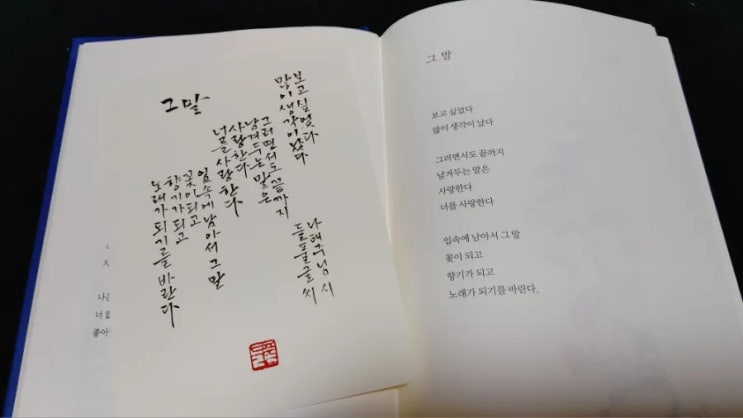 그 말
보고 싶었다
많이 생각이 났다
그러면서도 끝까지
남겨두는 말은
사랑한다
너를 사랑한다
입속에 남아서 그 말
꽃이 되고
향기가 되고
노래가 되기를 바란다
나태주님 시
들풀글씨
나는
너를
좋아
그 말
보고 싶었다
많이 생각이 났다
그러면서도 끝까지
남겨두는 말은
사랑한다
너를 사랑한다
입속에 남아서 그 말
꽃이 되고
향기가 되고
노래가 되기를 바란다.